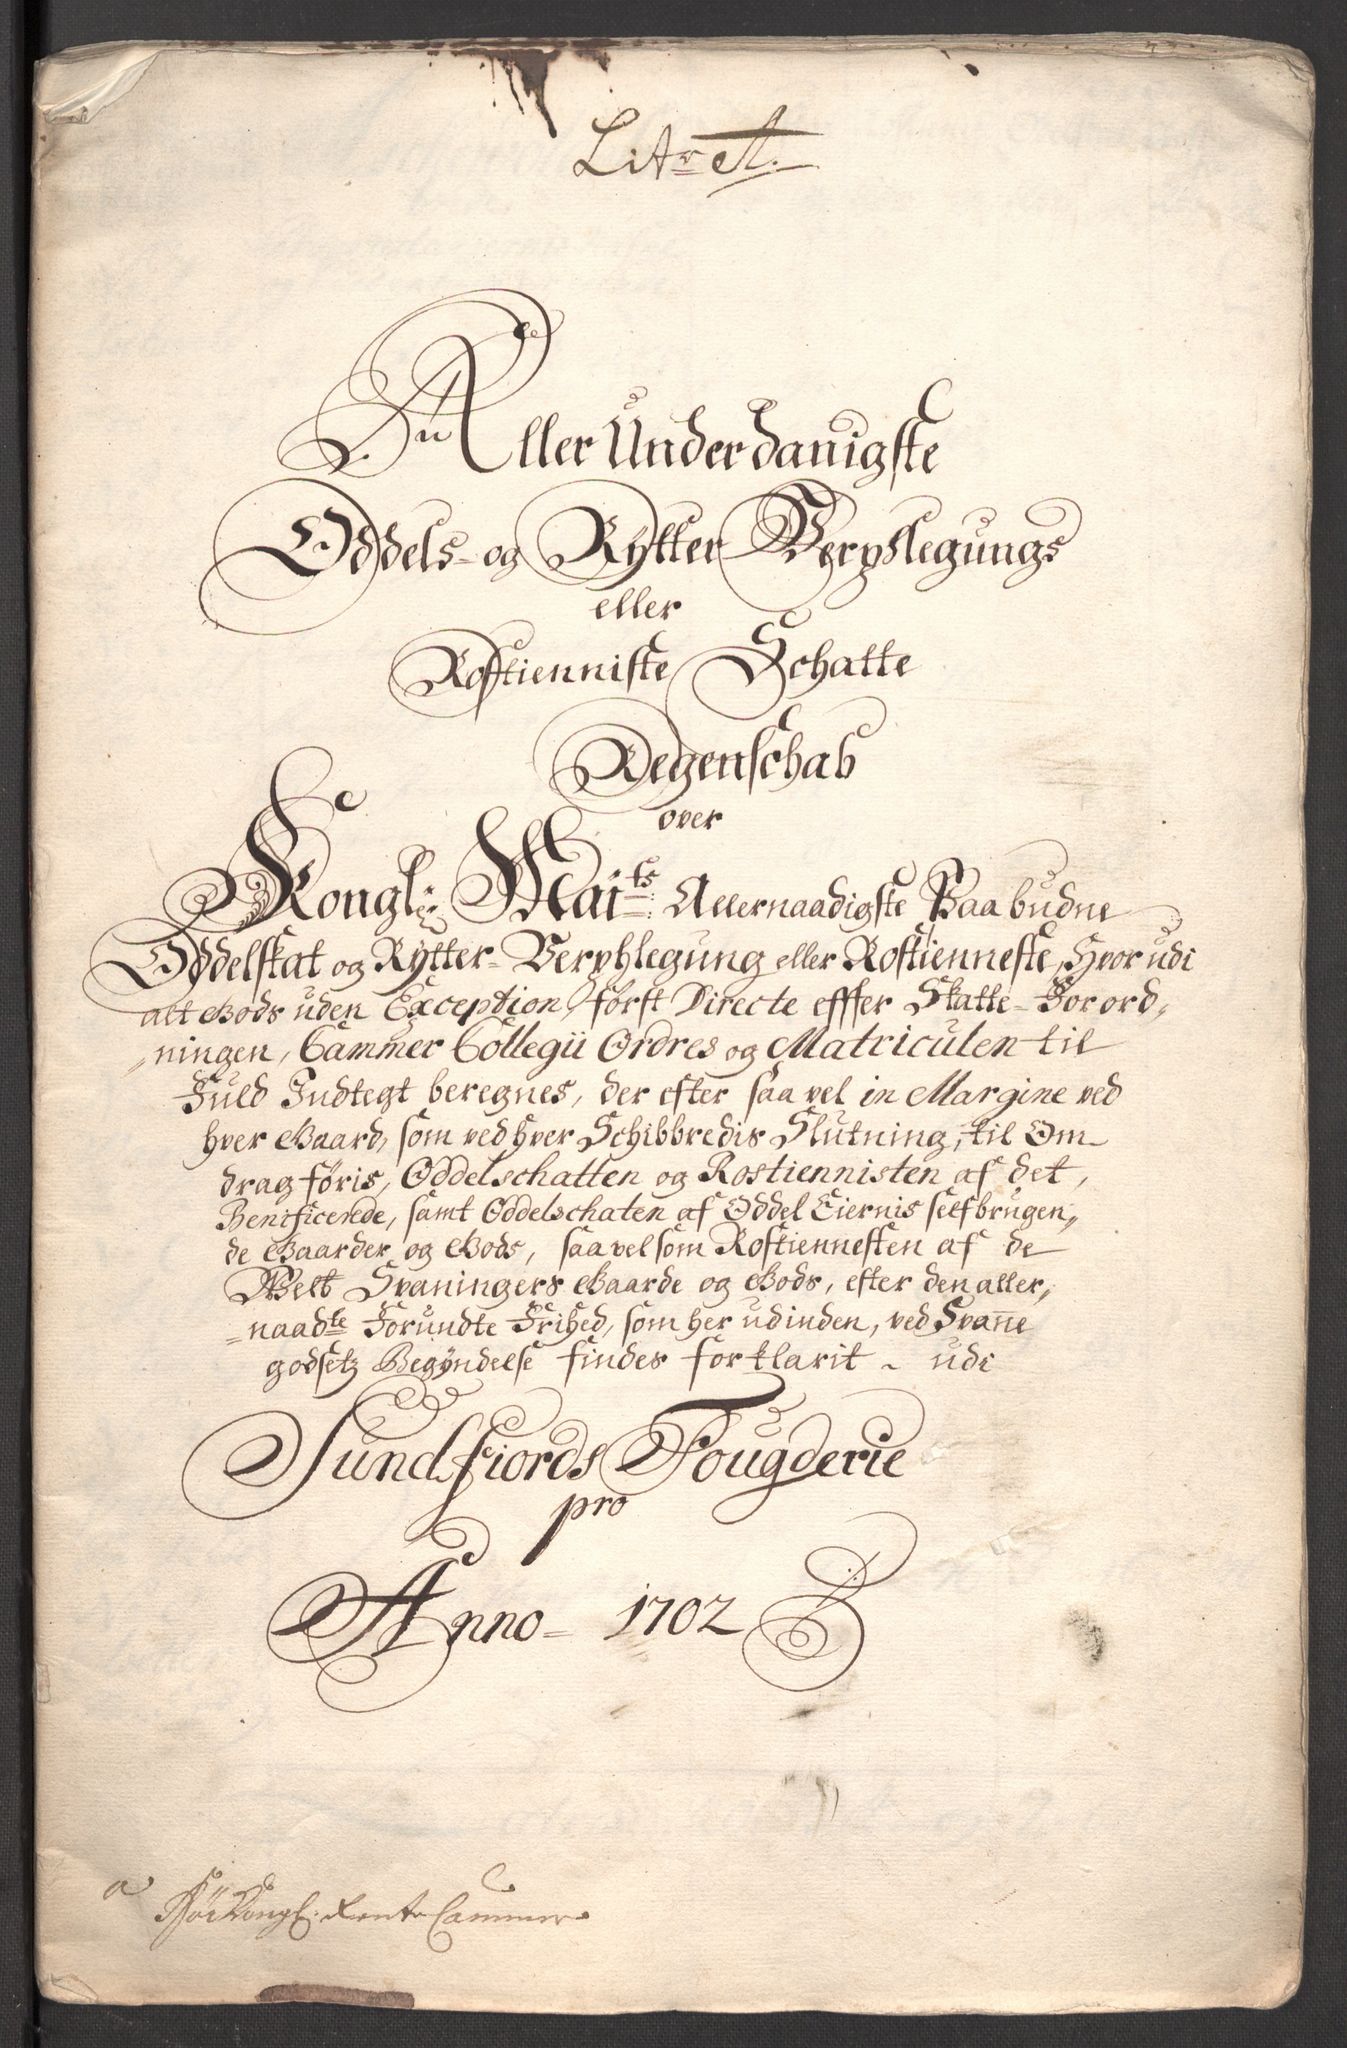 Lit:r A.
En Aller Underdanigste
Oddels- og Rytter Verpflegungs
eller
Rostienniste Schatte
Regenschab
over
Kongl: Mai:ts Allernaadigste Paabudne
Oddelskat og Rytter-Verphlegung eller Rostienneste, Hvorudi
alt Gods uden Exception, først Directe effter Skatte-Forord„
„ningen, Cammer Collegii Ordres og Matriculen til
Fuld Indtegt beregnes, der efter saa vel in Margine ved
hver Gaard, som ved hver Schibbredis Slutning, til Om„
drag føris, Oddelschatten og Rostiennisten af det,
Benificerede, samt Oddelschaten af Oddel Eiernis selfbrugen„
de Gaarder og Gods, saavelsom Rostiennesten af de
Welb Svaningers Gaarde og Gods, efter den aller„
„naadte Forundte Frihed, som her udinden, ved Svane
godsetz Begyndelse findes forklarit - udi
Sundfiords Fougderie
pro
Anno- 1702
a
Kongl: Rente Cammer